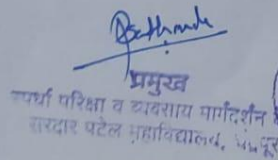 प्रमुख
स्पर्धा परिक्षा व व्यवसाय मार्गदर्शन
सरदार पटेल महाविद्यालय,